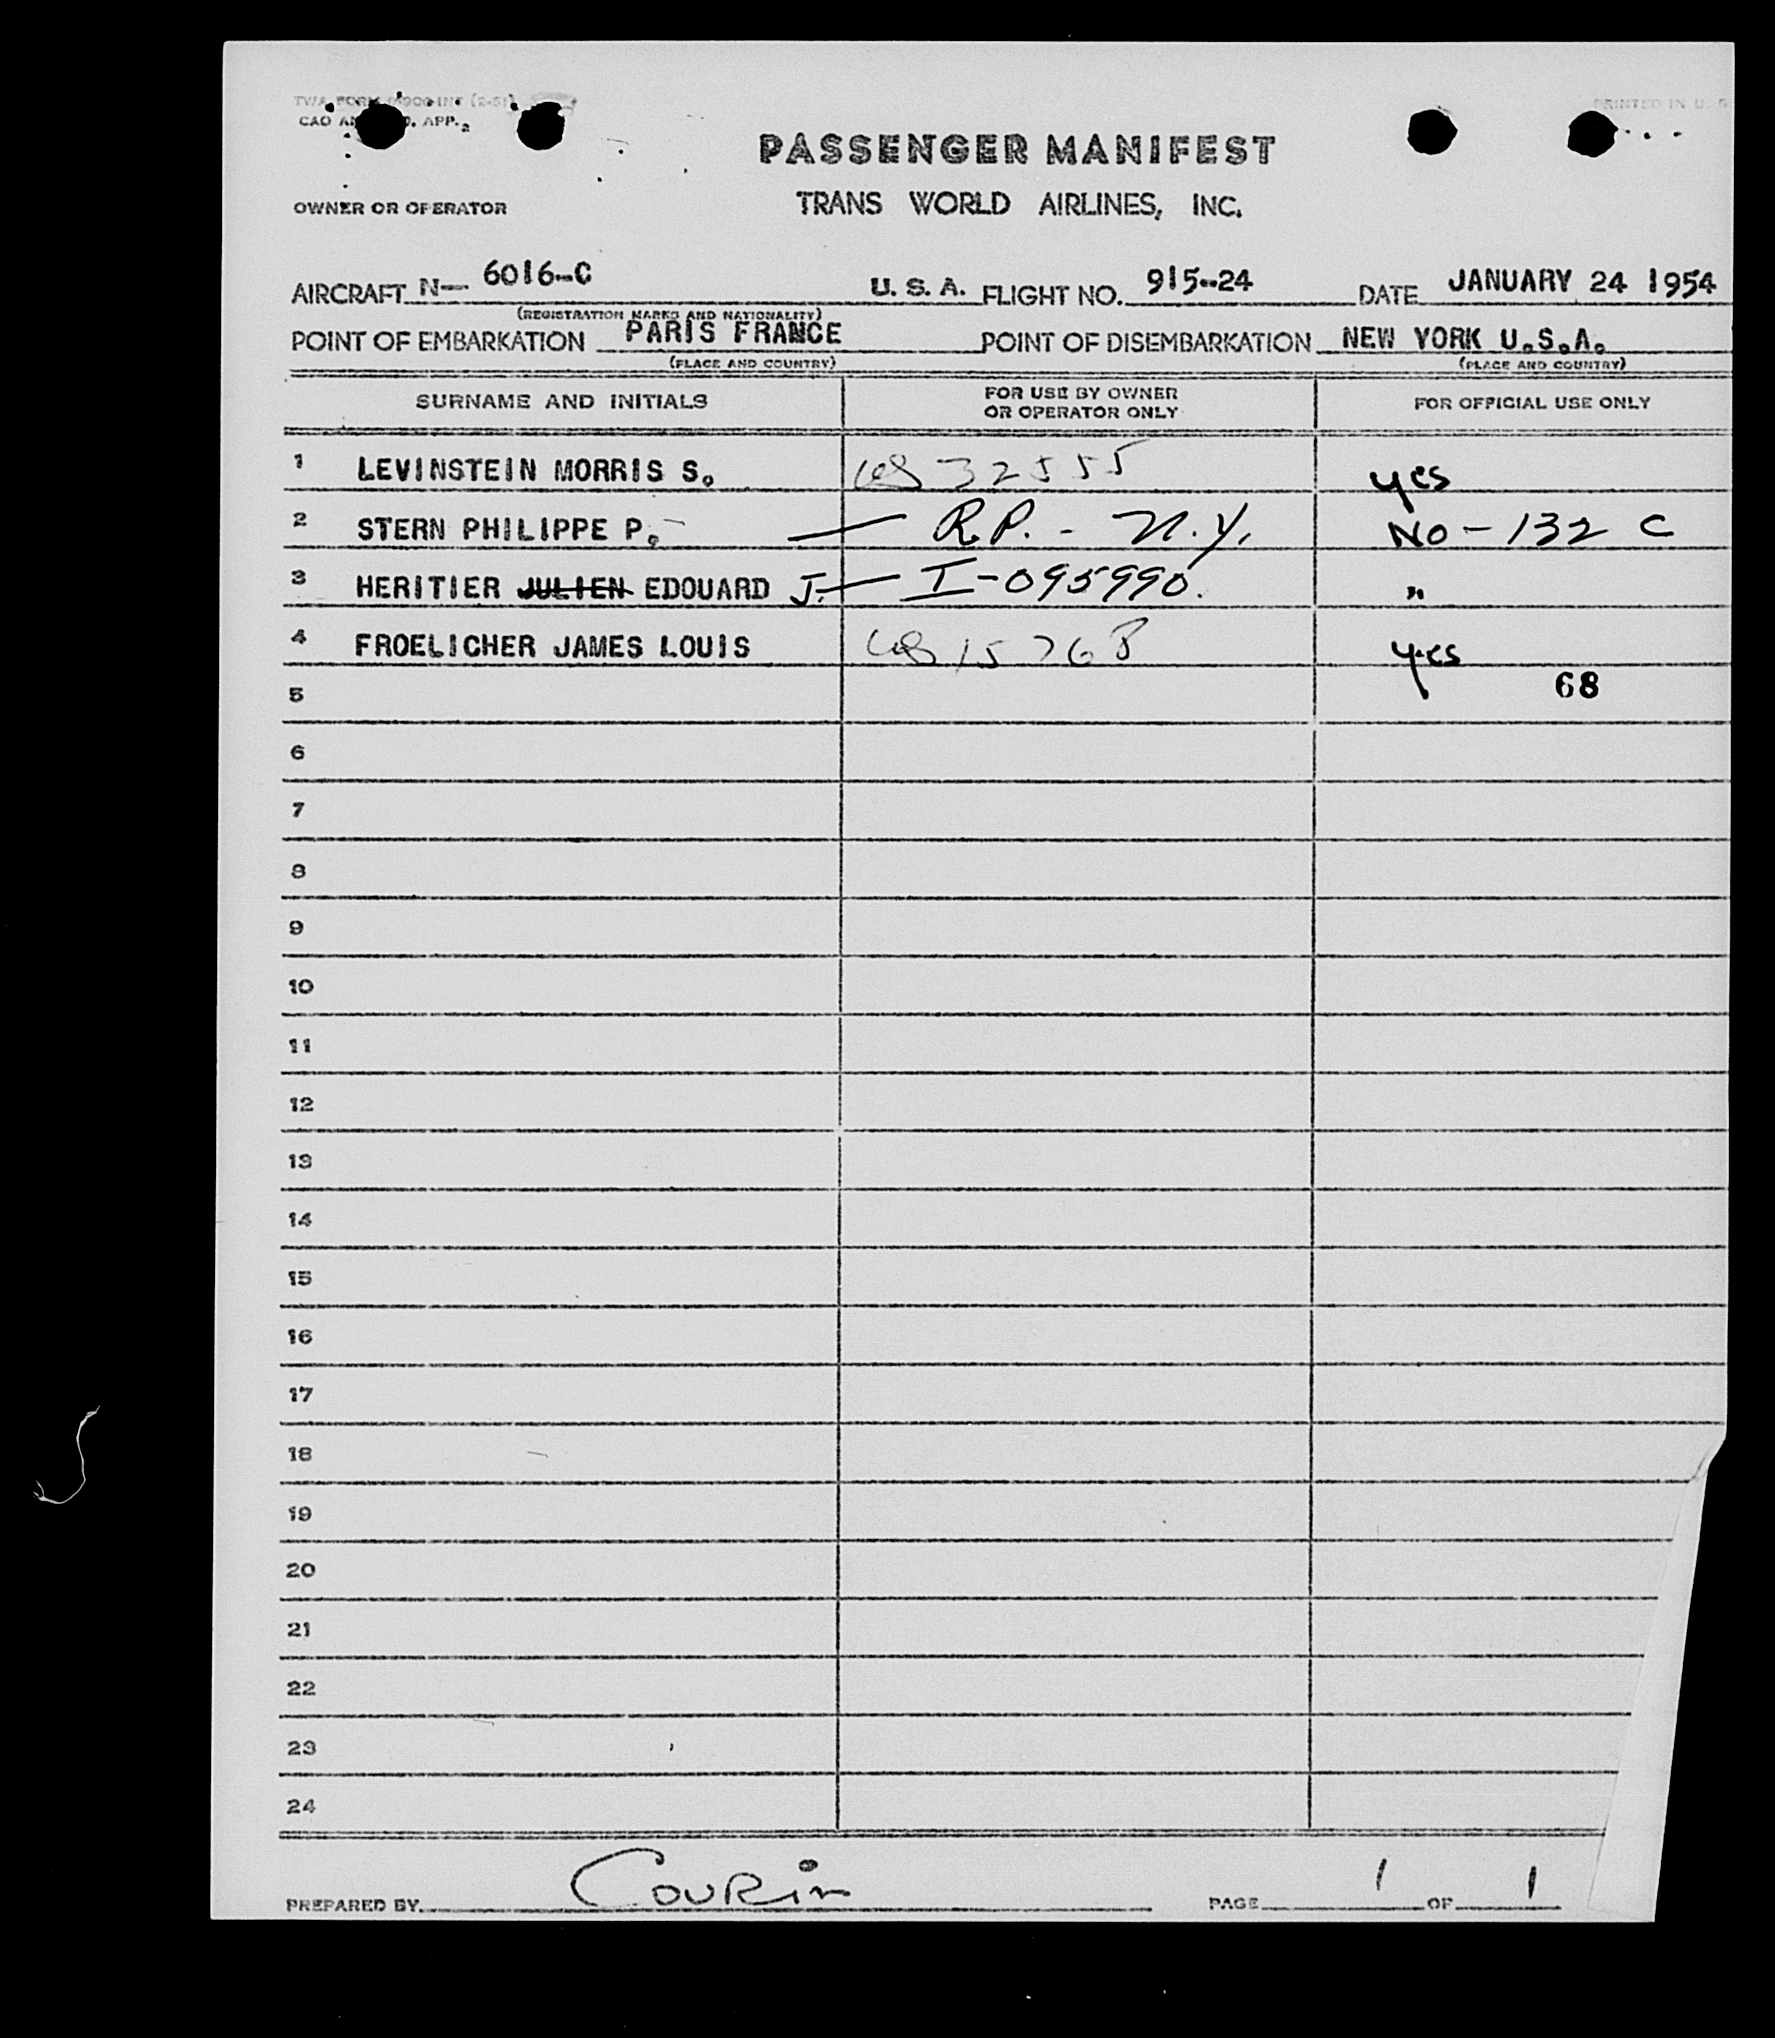 TWA FORM INT (2-51)
CAO APP. 2
PRINTED IN U. S.
PASSENGER MANIFEST
OWNER OR OPERATOR
TRANS WORLD AIRLINES, INC.
AIRCRAFT N— 6016-C U. S. A. FLIGHT NO. 915-24 DATE JANUARY 24 1954
(REGISTRATION MARKS AND NATIONALITY)
POINT OF EMBARKATION PARIS FRANCE POINT OF DISEMBARKATION NEW YORK U.S.A.
(PLACE AND COUNTRY) (PLACE AND COUNTRY)
SURNAME AND INITIALS FOR USE BY OWNER OR OPERATOR ONLY FOR OFFICIAL USE ONLY
1 LEVINSTEIN MORRIS S. 32555 yes
2 STERN PHILIPPE P. — R.P. - N.Y. NO - 132 C
3 HERITIER JULIEN EDOUARD J. — I-095990. "
4 FROELICHER JAMES LOUIS 15768 yes
5 68
6
7
8
9
10
11
12
13
14
15
16
17
18
19
20
21
22
23
24
PREPARED BY Courin PAGE 1 OF 1